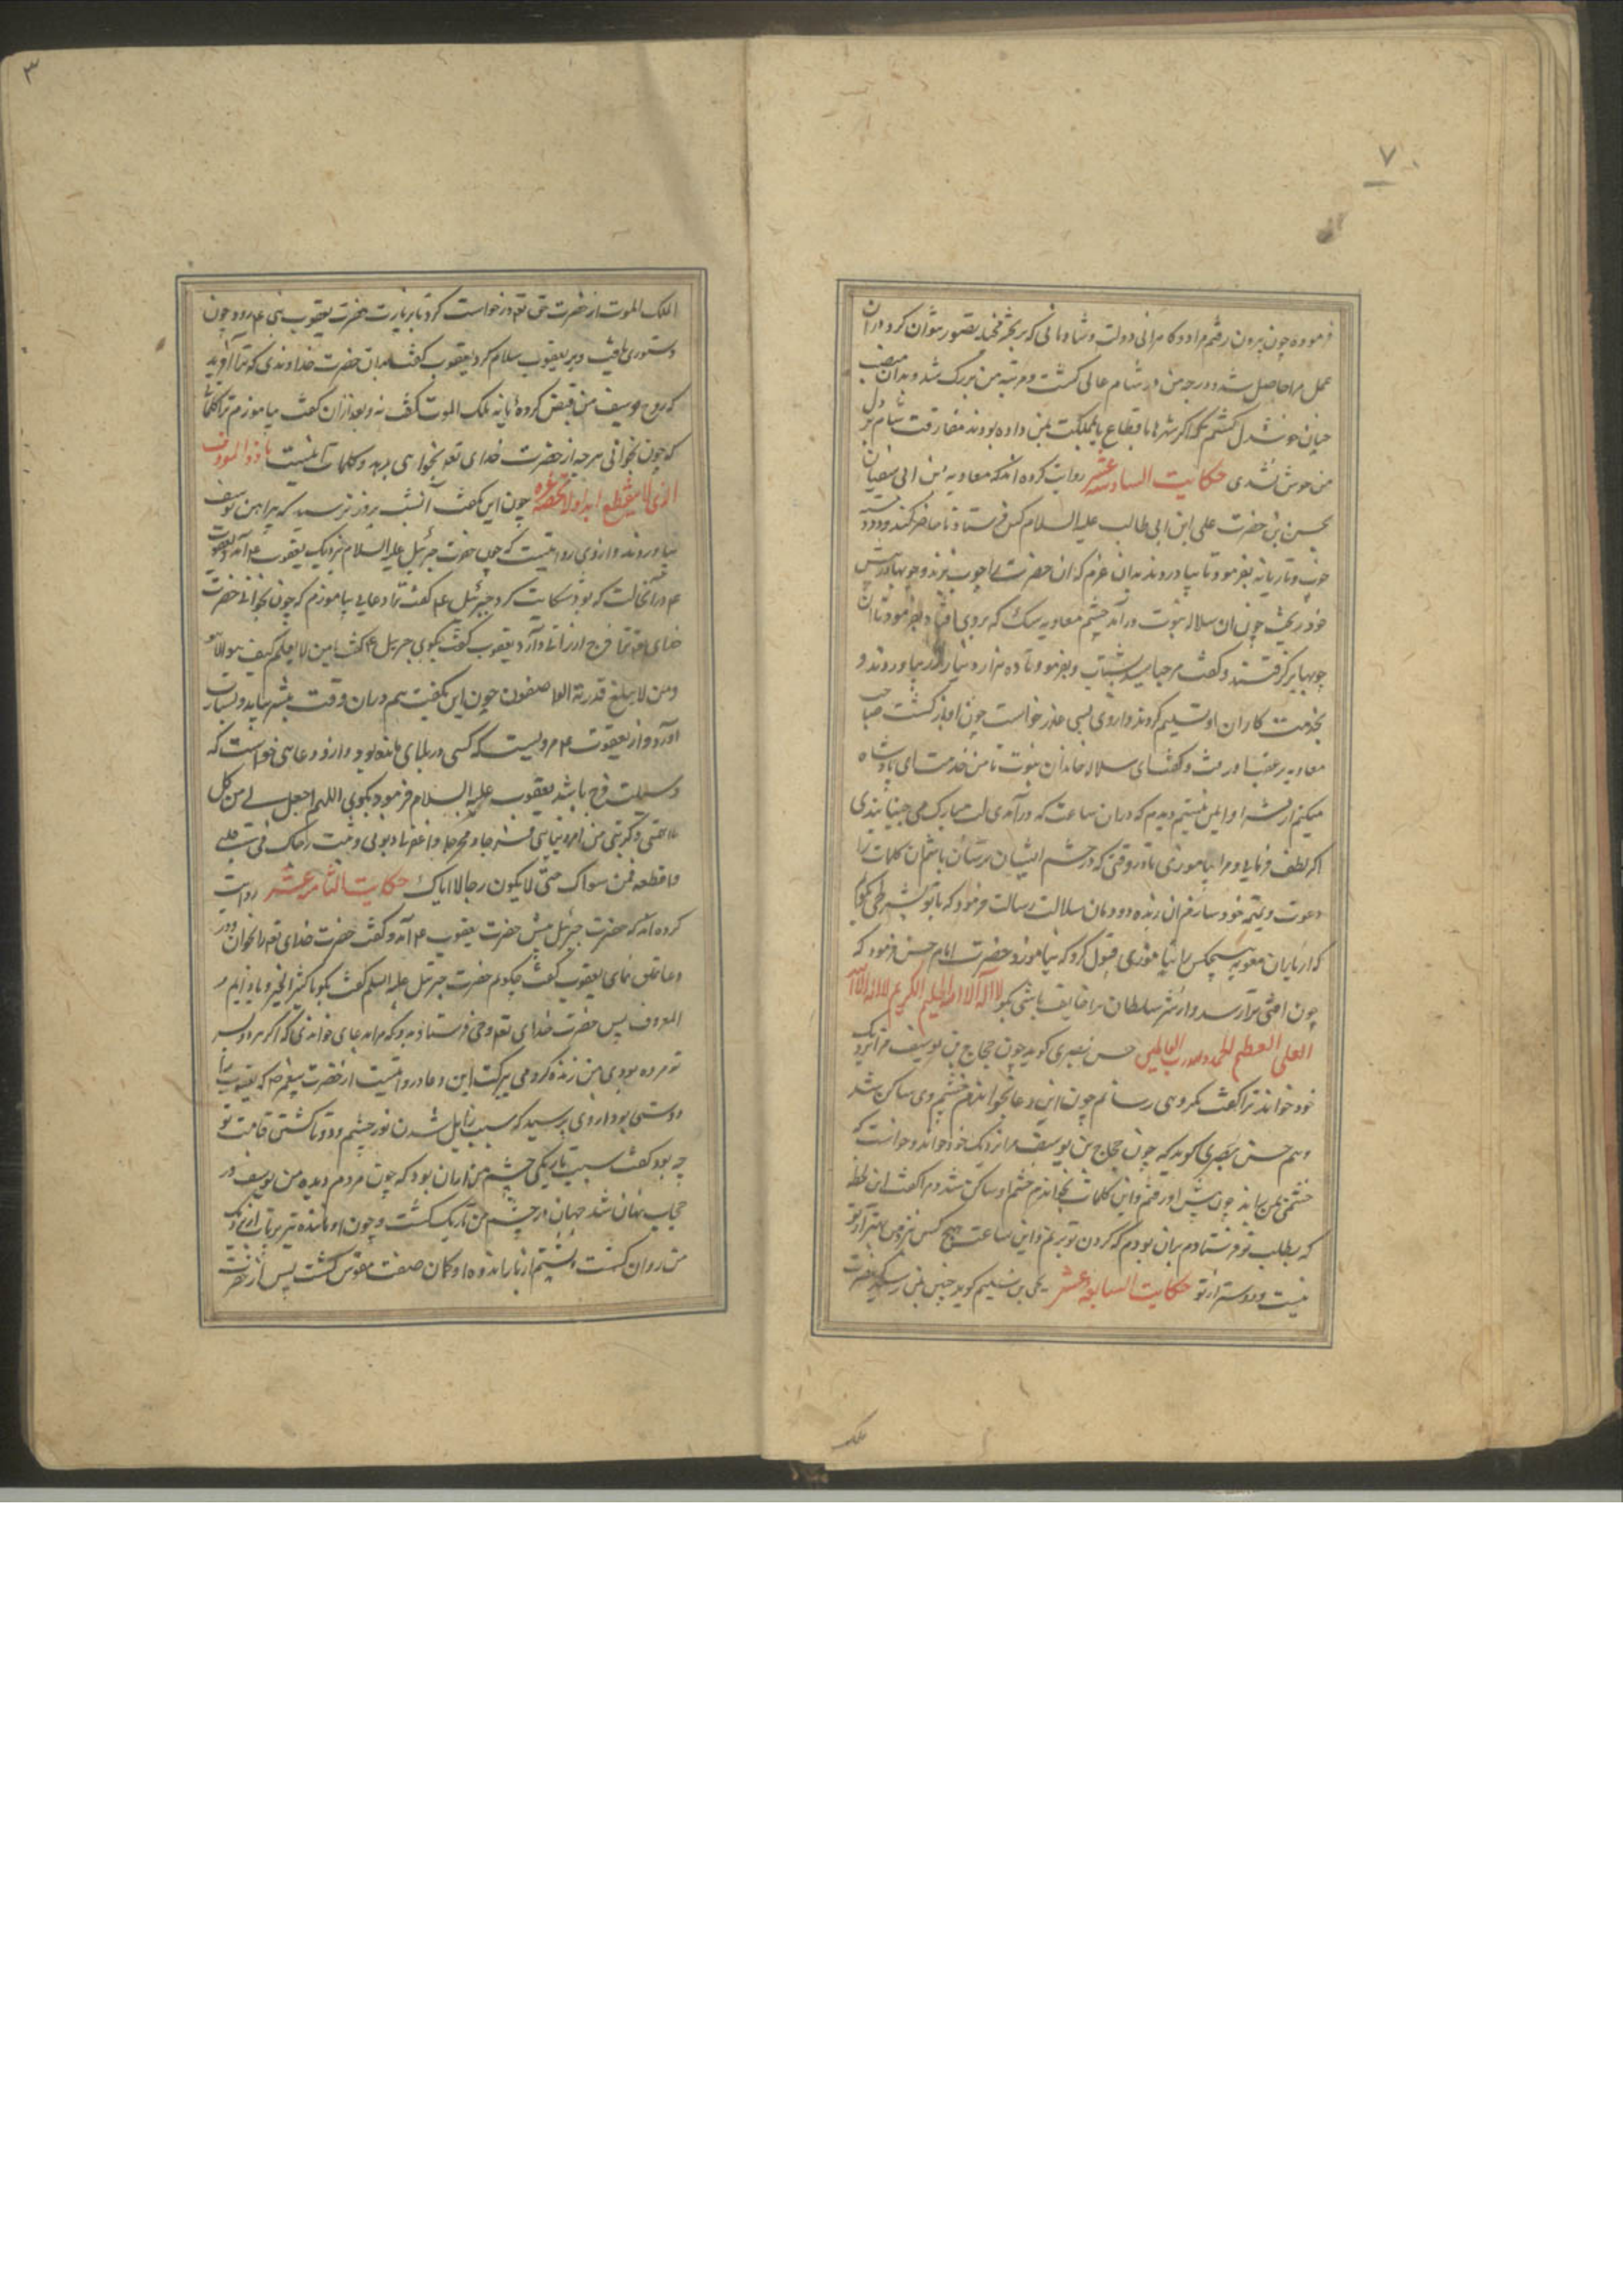 ۷
فرموده چون برون رفتم مراد و کامرانی دولت و شادمانی که بر بشر فخیله تصور بتوان کرد دران
عمل مرا حاصل شد و درجه من در شام عالی گشت و مرتبه من بزرگ شد و بدان منصب
چنان خوشدل گشتم که اگر شهرها باقطاع یا مملکت بمن داده بودند مفارقت شام بر دل
من خوش نشدی حکایت السادسعشر روایت کرده اند که معاویه ابن ابی سفیان
بحسن بن حضرت علی ابن ابی طالب علیه السلام کس فرستاد تا حاضر کنند و دو دسته
چوب و تازیانه بفرمود تا بیاوردند بدان عزم که ان حضرت را چوب بزند و چوبها در پیش
خود بریخت چون ان سلاله نبوت درآمد چشم معاویه سگ که بروی افتاد بفرمود تا ان
چوبها برگرفتند و گفت مرحبا سید شباب و بفرمود تا ده هزار دینار زر بیاوردند و
بخدمت کاران او تسلیم کردند و ازوی بسی عذر خواست چون او بازگشت صاحب
معاویه بر عقب او رفت و گفت ای سلاله خاندان نبوت تا من خدمت ای پادشاه
میکنم از شر او ایمن نیستم دیدم که دران ساعت که درآمدی لب مبارک می جنبانیدی
اگر لطف فرمایی و مرا بیاموزی تا در وقتی که در چشم ایشان ترسان باشم ان کلمات را
دعوت و تمیمه خود سازم ان زبده دودمان سلالت رسالت فرمود که با تو بشرطی بگویم
که از یاران معویه هیچکس را نیاموزی قبول کرد که نیاموزد حضرت امام حسن فرمود که
چون امتی تو را رسد و از شر سلطان مرا خایف باشی بگو لا اله الا الله الحلیم الکریم لا اله الا الله
العلی العظیم الحمد لله رب العالمین حسن بصری گوید چون حجاج بن یوسف مرا نزدیک
خود خواند ترا گفت مکروهی رسانم چون این دعا بخواندم خشم وی ساکن شد
و هم حسن بصری گوید که چون حجاج بن یوسف مرا نزدیک خود خواند و خواست که
خشمی بمن براند چون پیش او رفتم و این کلمات بخواندم خشم او ساکن شد و مرا گفت این لحظه
که بطلب تو فرستادم بران بودم که گردن تو بزنم و این ساعت هیچ کس نزد من بهتر از تو
نیست و دوستر از تو حکایت السابعه عشر یحیی بن سلیم گوید چنین بمن رسید که حضرت
ملک
۳
الملک الموت از حضرت حق تع درخواست کرد تا بزیارت حضرت یعقوب نبی ع رود چون
دستوری یافت و بر یعقوب سلام کرد یعقوب گفت بدان حضرت خداوندی که ترا آفرید
که روح یوسف من قبض کردهٔ یا نه ملک الموت گفت نه و بعد ازان گفت بیاموزم ترا کلماتی
که چون بخوانی هر چه از حضرت خدای تع بخواهی بدهد و کلمات اینست یا ذوالمعروف
الذی لا ینقطع ابدا ولا یحصیه غیره چون این بگفت آن شب بروز نرسید که پیراهن یوسف
بیاوردند و ازوی روایتست که چون حضرت جبرئیل علیه السلام نزدیک یعقوب ع آمد یعقوب
ع در آنحالت که بود شکایت کرد جبرئیل ع گفت ترا دعایی بیاموزم که چون بخوانی حضرت
خدای تع ترا فرج ارزانی دارد یعقوب گفت بگوی جبریل ع گفت یا من لا یعلم کیف هو الا هو
ومن لا یبلغ قدرته الواصفون چون این بگفت هم دران وقت بشیر بیامد و بشارت
آورد و از یعقوب ع مرویست که کسی در بلای مانده بود و ازو دعایی خواست که
وسیلت فرج باشد یعقوب علیه السلام فرمود بگوی اللهم اجعل لی من کل
ما اهمنی وکربنی من امر دنیای فرجا ومخرجا واغفر لی ذنوبی وثبت رجاک فی قلبی
واقطعه ممن سواک حتی لا یکون رجا الا ایاک حکایت الثامن عشر روایت
کرده اند که حضرت جبرئیل پیش حضرت یعقوب ع آمد و گفت حضرت خدای تع را بخوان و در
دعا تملق نمای یعقوب گفت چگویم حضرت جبرئیل علیه السلم گفت بگو یا کثیر الخیر و یا دایم
المعروف پس حضرت خدای تع وحی فرستاد بدو که مرا بدعای خواندی که اگر هر دو پسر
تو مرده بودی من زنده کردمی ببرکت این دعا و روایتست از حضرت پیغمبر ص که یعقوب را
دوستی بود ازوی پرسید که سبب زایل شدن نور چشم و دوتا گشتن قامت تو
چه بود گفت سبب تاریکی چشم من ازان بود که چون مردم دیده من یوسف در
حجاب نهان شد جهان در چشم من تاریک گشت و چون او مانند تیر پرتاب از نزدیک
من روان گشت پشتم از بار اندوه او کمان صفت مقوس گشت پس از حضرت